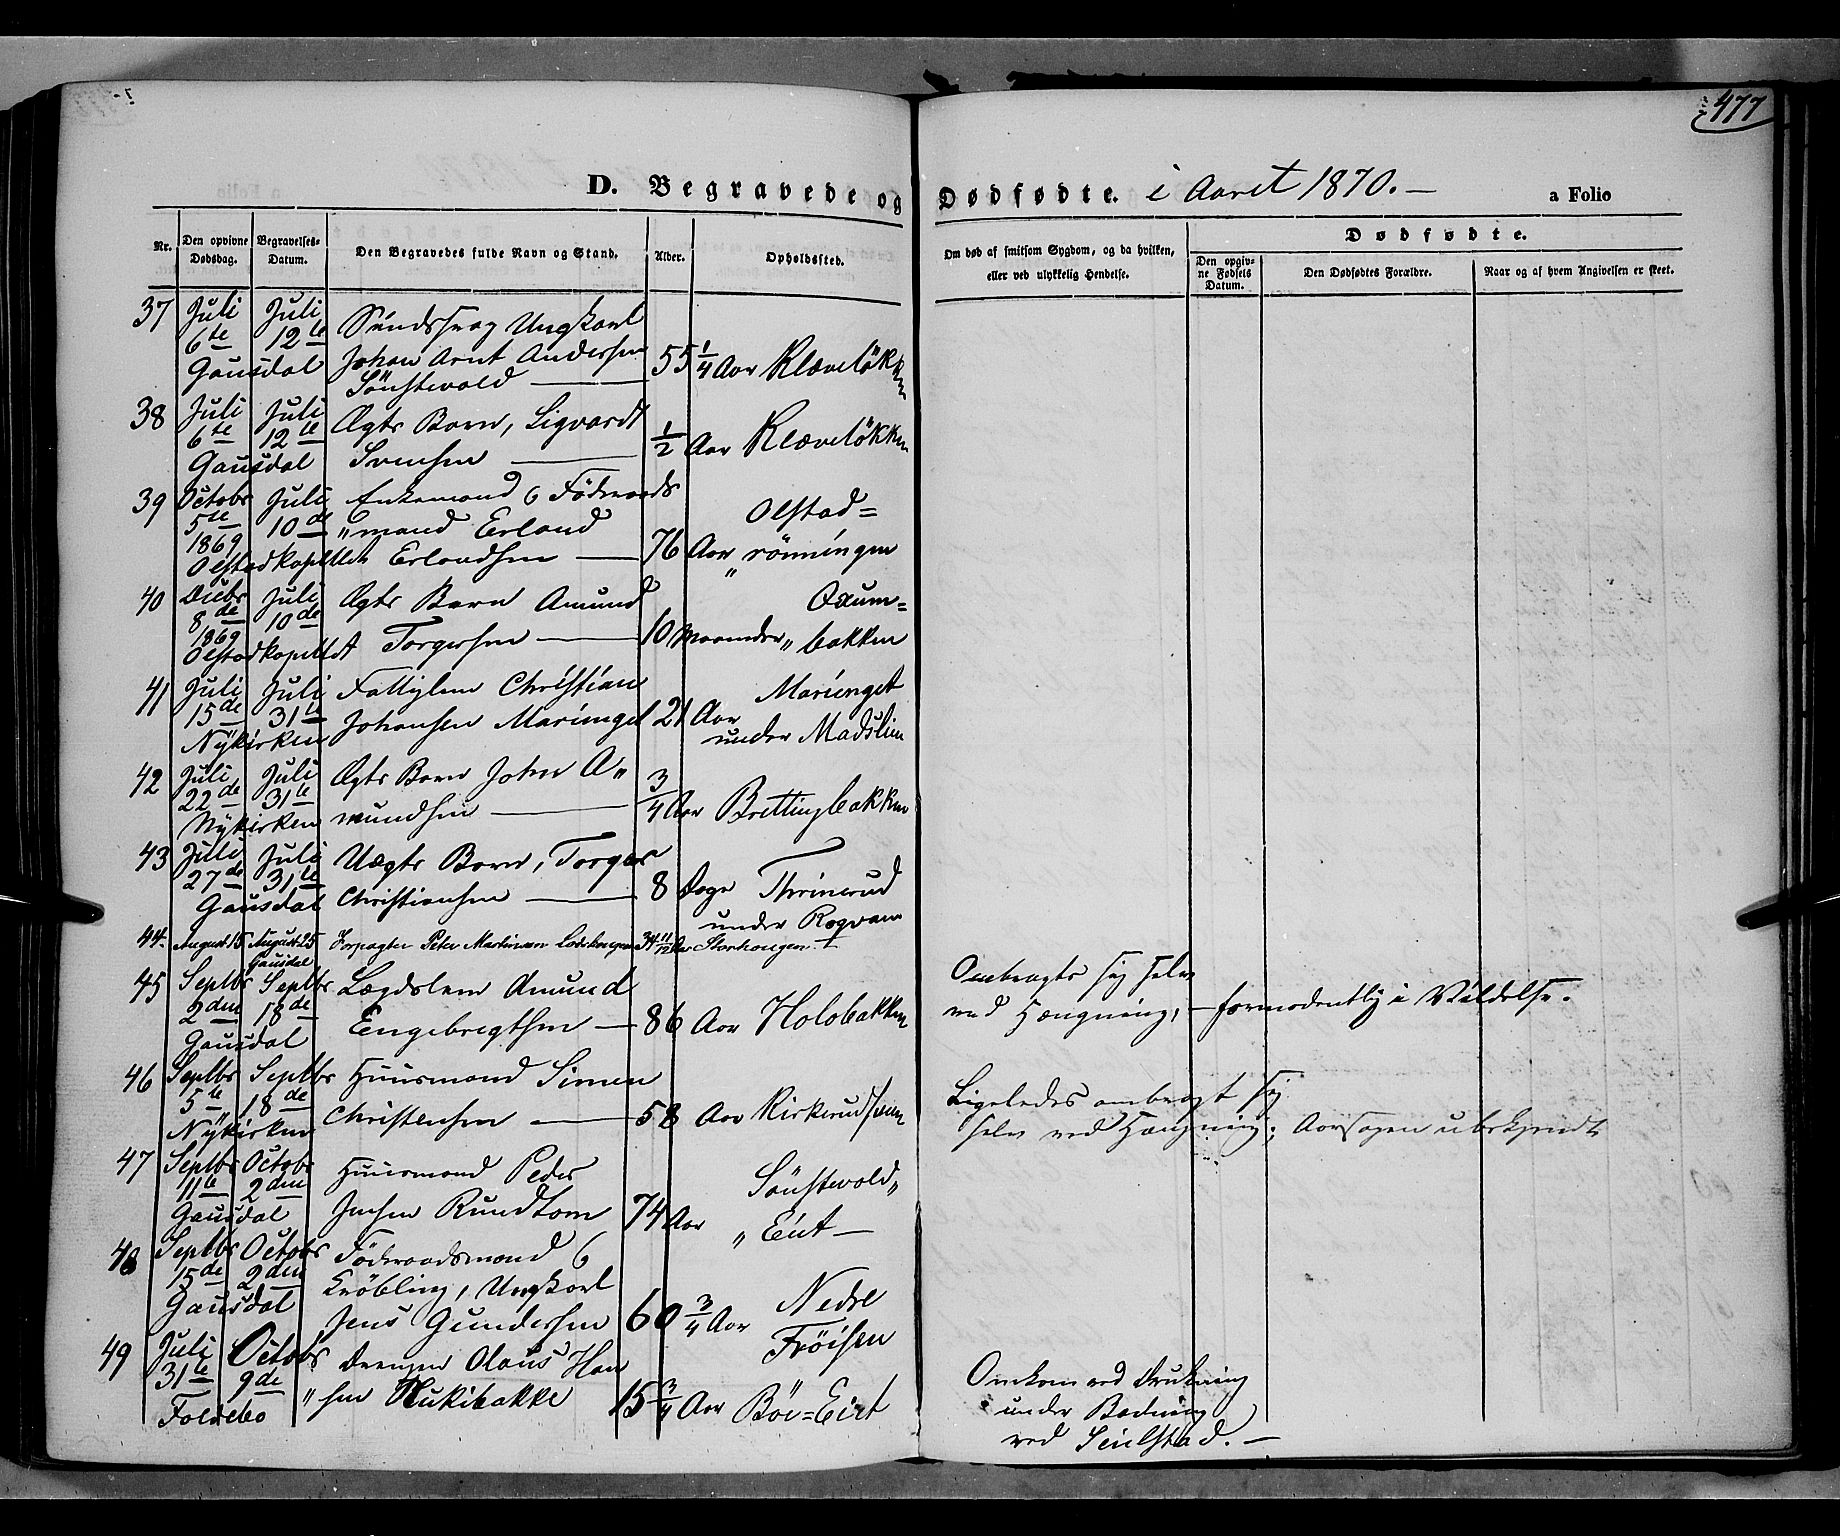 477
D. Begravede og Dødfødte. i Aaret 1870. —
a Folio
Nr.
Den opgivne Dødsdag.
Begravelses-Datum.
Den Begravedes fulde Navn og Stand.
Alder.
Opholdssted.
Om død af smitsom Sygdom, og da hvilken,
eller ved ulykkelig Hendelse.
Dødfødte.
Den opgivne Fødsels Datum.
Den Dødfødtes Forældre.
Naar og af hvem Angivelsen er skeet.
37 Juli Juli Ungkarl
6te 12te Johan Arnt Andersen 55 1/4 Aar Klæveløkken
Gausdal Sönstevold —
38 Juli Juli Ægte Barn, Sigvardt
6te 12te Svensen — 1/2 Aar Klæveløkken
Gausdal
39 Octobr Juli Enkemand & Föderaads
5te 10de "mand Erland Olstad=
1869 Erlandsen — 76 Aar "rönningen
Olstadkapellet
40 Decbr Juli Ægte Barn Amund Oxum=
8de 10de
1869 Torgersen — 10 Maaneder "bakken
Olstadkapellet
41 Juli Juli Fattiglem Christian Marienget
15de 31te Johansen Marienget 21 Aar under Madslien
Nÿkirken
42 Juli Juli Ægte Barn John A"
22de 31te mundsen — 3/4 Aar Brettingbakken
Nÿkirken
43 Juli Juli Uægte Barn, Torger
27de 31te Christiansen — 8 Dage Thrinerud
Gausdal under Rogvam
44. August 15 August 25 Forpagter Peter Martinsen 34 11/12 Aar Storhaugen
Gausdal
45 Septbr Septbr Lægdslem Amund
2den 18de Engebregtsen — 86 Aar Holobakken
Gausdal
Ombragte sig selv
ved Hængning, — formodentlig i Vildelse.
46 Septbr Septbr Huusmand Simen
5te 18de Christensen — 58 Aar
Nÿkirken
Ligeledes ombragt sig
selv ved Hængning; Aarsagen ubekjendt
47 Septbr Octobr Huusmand Peder Sönstevold"
11te 2den Jensen Rundtom 74 Aar "Eiet —
Gausdal
48 Septbr Octobr Föderaadsmand &
15de 2den Kröbling, Ungkarl Nedre
Gausdal Jens Gundersen 60 3/4 Aar Fröisen
49 Juli Octobr Drengen Olaus Han
31te 9de "sen 15 3/4 Aar Böe=Eiet
Foldebo
Omkom ved Drukning
under Badning
ved Seielstad. —